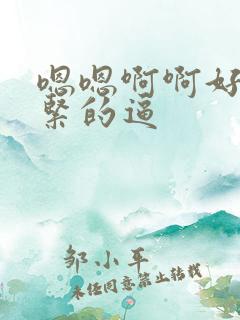 嗯嗯啊啊好
紧的逼
邹小车
未经同意禁止转载